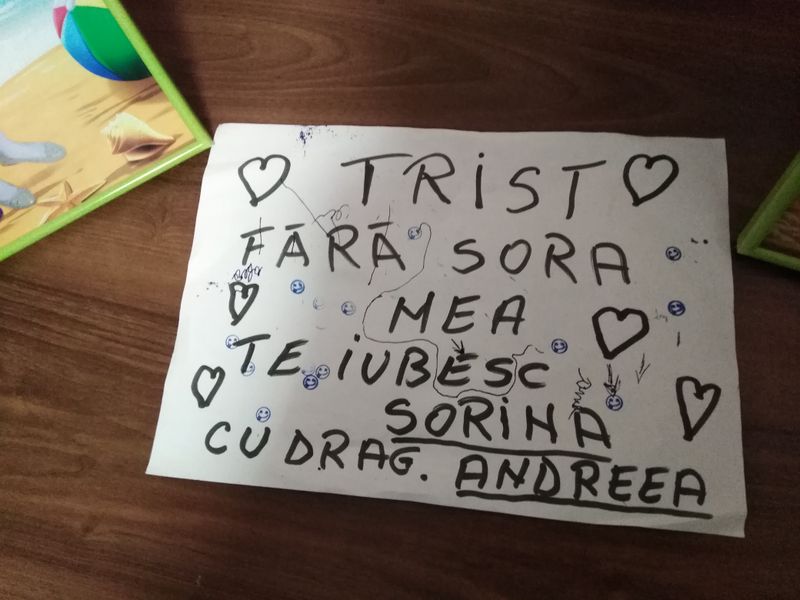 TRIST
FĂRĂ SORA
MEA
TE IUBESC
SORINA
CU DRAG. ANDREEA